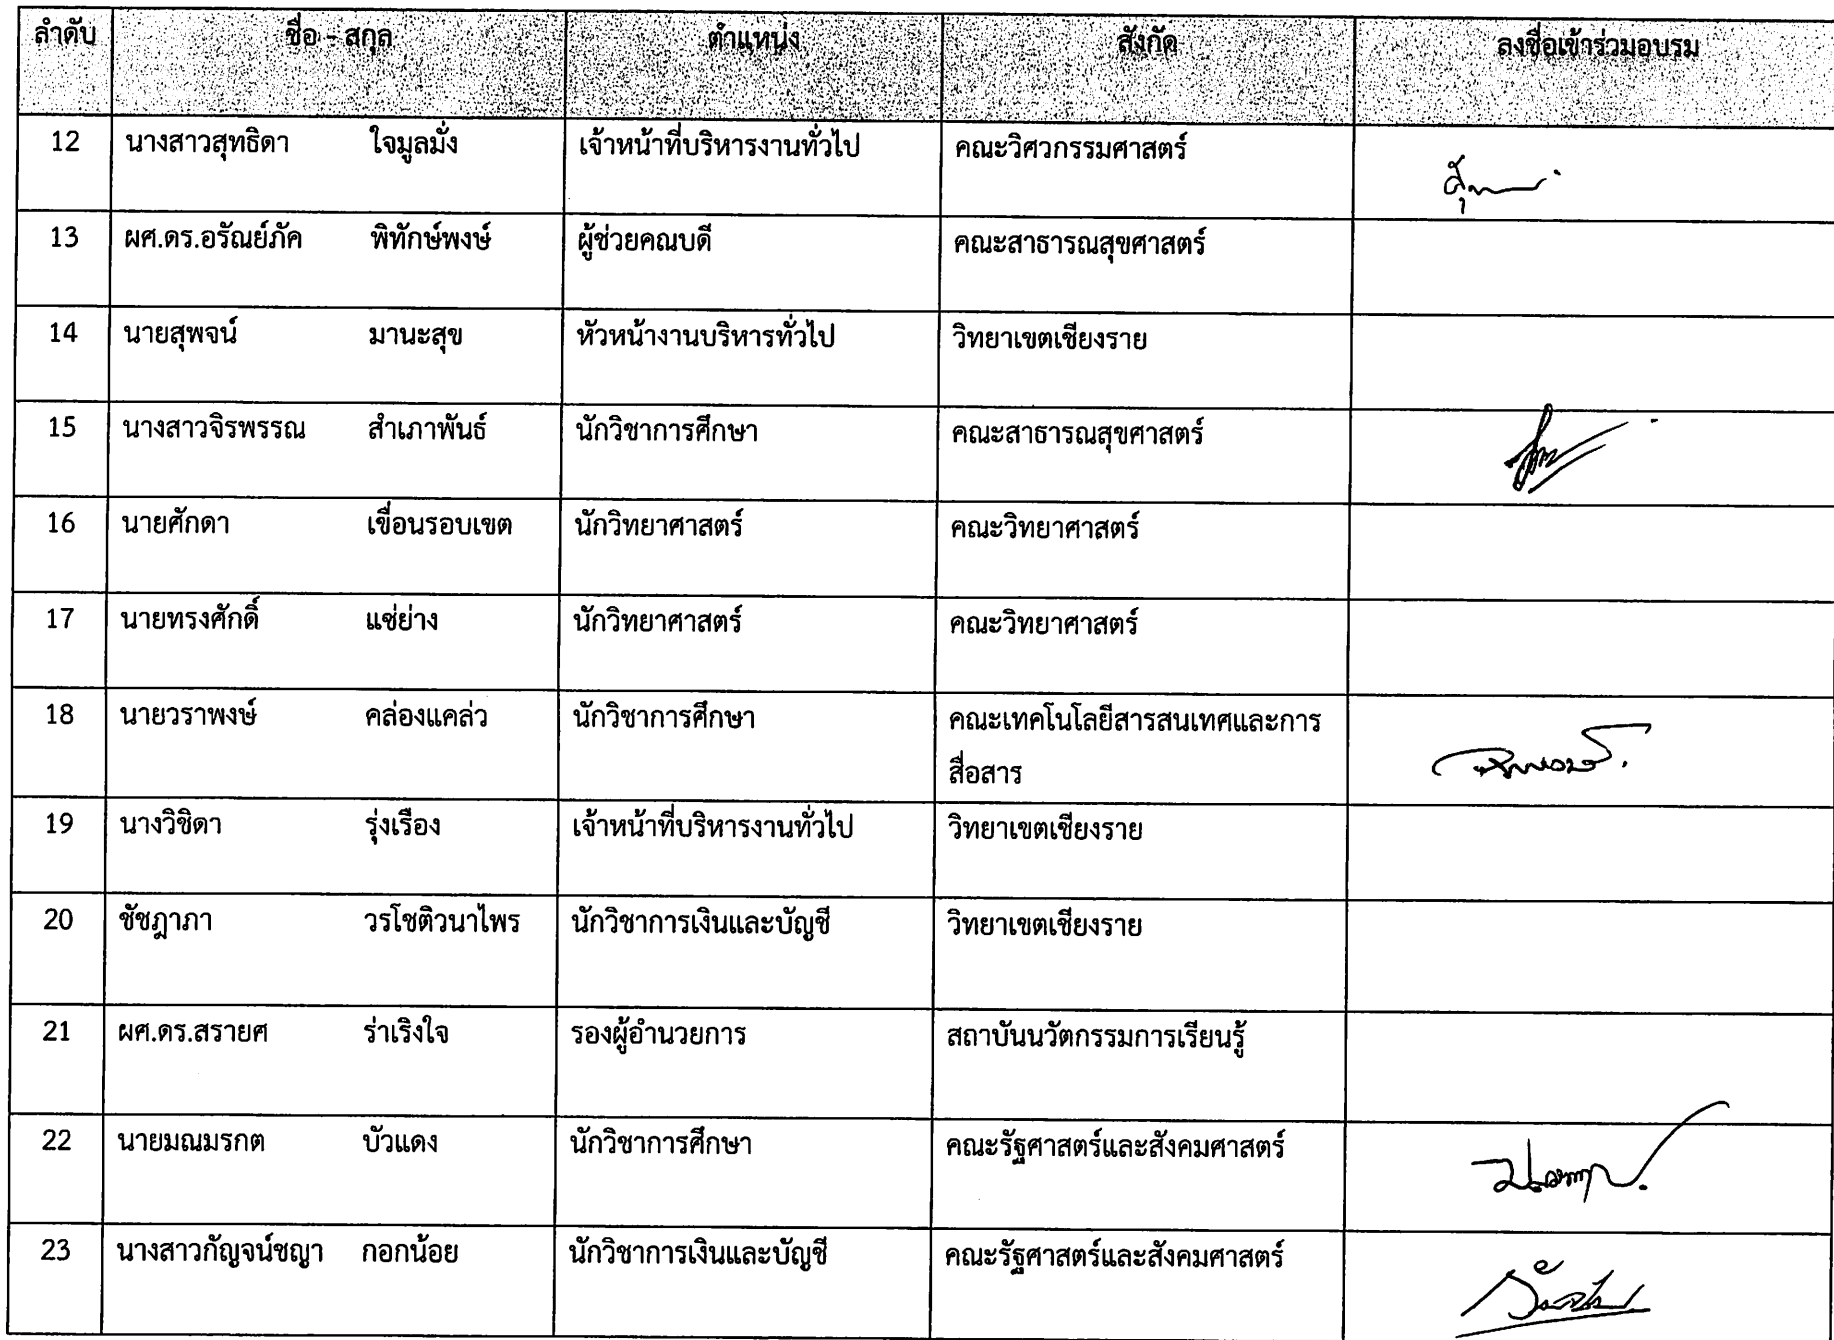 ลำดับ ชื่อ - สกุล ตำแหน่ง สังกัด ลงชื่อเข้าร่วมอบรม
12 นางสาวสุทธิดา ใจมูลมั่ง เจ้าหน้าที่บริหารงานทั่วไป คณะวิศวกรรมศาสตร์
13 ผศ.ดร.อรัณย์ภัค พิทักษ์พงษ์ ผู้ช่วยคณบดี คณะสาธารณสุขศาสตร์
14 นายสุพจน์ มานะสุข หัวหน้างานบริหารทั่วไป วิทยาเขตเชียงราย
15 นางสาวจิรพรรณ สำเภาพันธ์ นักวิชาการศึกษา คณะสาธารณสุขศาสตร์
16 นายศักดา เขื่อนรอบเขต นักวิทยาศาสตร์ คณะวิทยาศาสตร์
17 นายทรงศักดิ์ แซ่ย่าง นักวิทยาศาสตร์ คณะวิทยาศาสตร์
18 นายวราพงษ์ คล่องแคล่ว นักวิชาการศึกษา คณะเทคโนโลยีสารสนเทศและการ
สื่อสาร
19 นางวิชิดา รุ่งเรือง เจ้าหน้าที่บริหารงานทั่วไป วิทยาเขตเชียงราย
20 ชัชฎาภา วรโชติวนาไพร นักวิชาการเงินและบัญชี วิทยาเขตเชียงราย
21 ผศ.ดร.สรายศ ร่าเริงใจ รองผู้อำนวยการ สถาบันนวัตกรรมการเรียนรู้
22 นายมณมรกต บัวแดง นักวิชาการศึกษา คณะรัฐศาสตร์และสังคมศาสตร์
23 นางสาวกัญจน์ชญา กอกน้อย นักวิชาการเงินและบัญชี คณะรัฐศาสตร์และสังคมศาสตร์